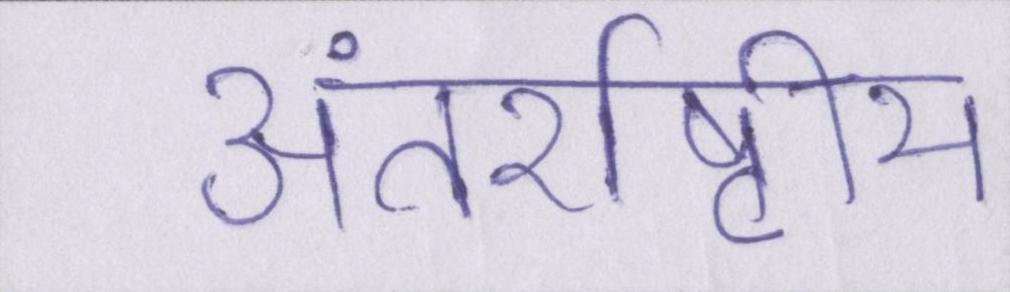 अंतर्राष्ट्रीय